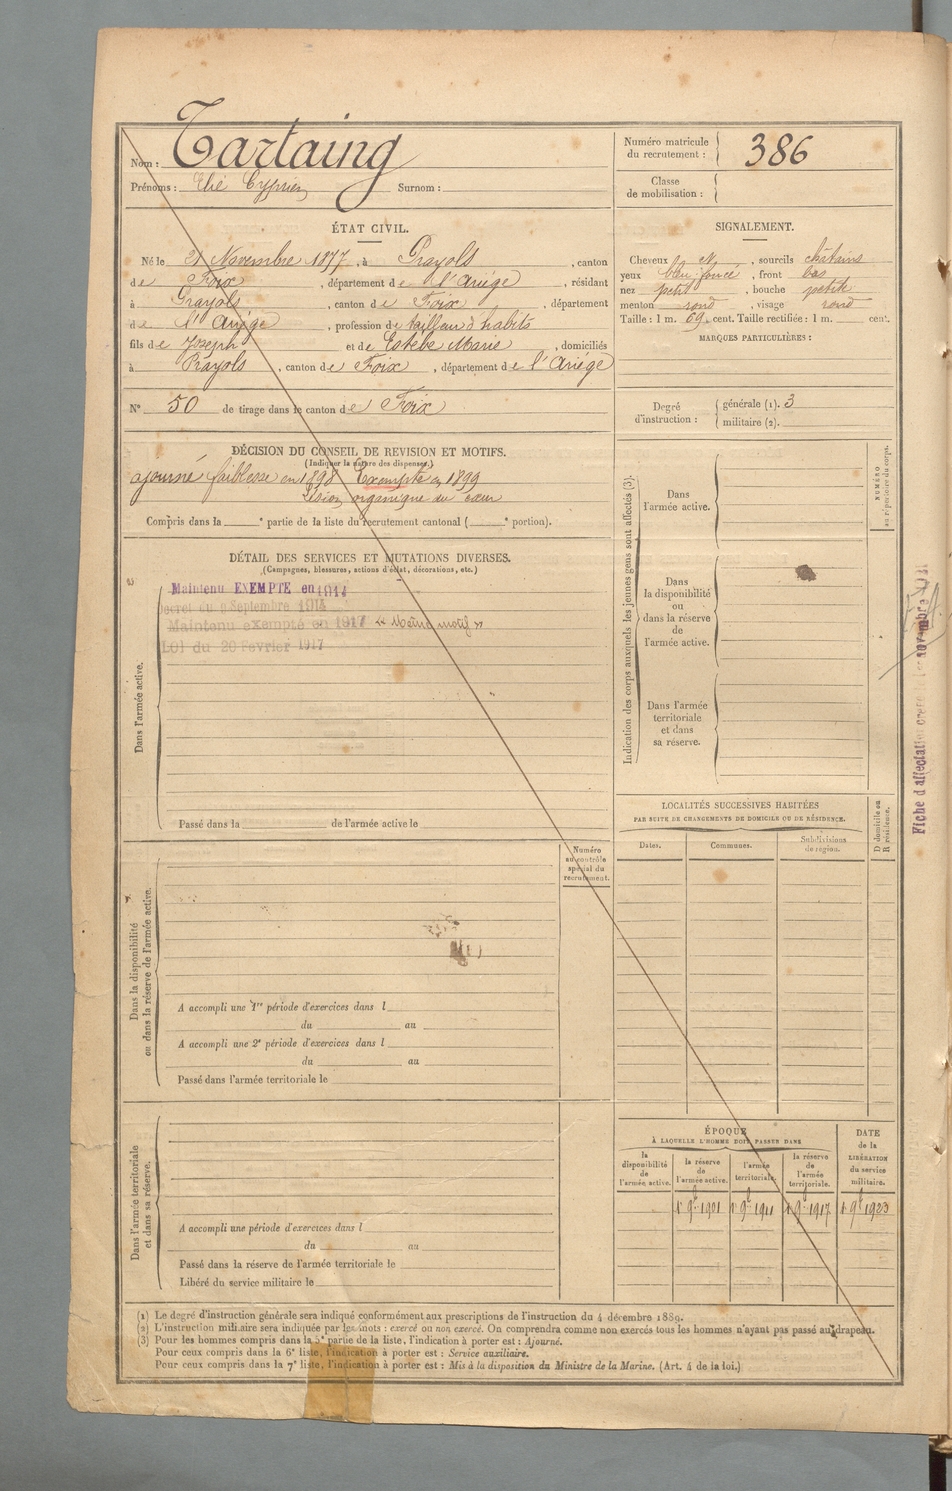 Nom : Tartaing
Prénoms : Elie Cyprien Surnom :
Numéro matricule du recrutement : 386
Classe de mobilisation :
ÉTAT CIVIL.
Né le 21 Novembre 1877, à Prayols, canton
de Foix, département de l'Ariége, résidant
à Prayols, canton de Foix, département
de l'Ariége, profession de tailleur d'habits
fils de Joseph et de Estèbe Marie, domiciliés
à Prayols, canton de Foix, département de l'Ariége
N° 50 de tirage dans le canton de Foix
SIGNALEMENT.
Cheveux N, sourcils châtains
yeux bleu foncé, front bas
nez petit, bouche petite
menton rond, visage rond
Taille : 1 m. 69 cent. Taille rectifiée : 1 m. cent.
MARQUES PARTICULIÈRES :
Degré d'instruction : générale (1). 3
militaire (2).
DÉCISION DU CONSEIL DE REVISION ET MOTIFS.
(Indiquer la nature des dispenses.)
ajourné faiblesse en 1898 Exempté en 1899
Lésion organique du cœur
Compris dans la e partie de la liste du recrutement cantonal ( e portion).
DÉTAIL DES SERVICES ET MUTATIONS DIVERSES.
(Campagnes, blessures, actions d'éclat, décorations, etc.)
Dans l'armée active.
Maintenu EXEMPTE en 1914
Decret du 9 Septembre 1914
Maintenu exempté en 1917 « Même motif »
LOI du 20 Fevrier 1917
Passé dans la de l'armée active le
Indication des corps auxquels les jeunes gens sont affectés (3).
Dans l'armée active.
Dans la disponibilité ou dans la réserve de l'armée active.
Dans l'armée territoriale et dans sa réserve.
NUMÉRO au répertoire du corps.
Fiche d'affectation
novembre
LOCALITÉS SUCCESSIVES HABITÉES
PAR SUITE DE CHANGEMENTS DE DOMICILE OU DE RÉSIDENCE.
Dates. Communes. Subdivisions de région.
D domicile ou R résidence.
Numéro au contrôle spécial du recrutement.
Dans la disponibilité ou dans la réserve de l'armée active.
A accompli une 1re période d'exercices dans l
du au
A accompli une 2e période d'exercices dans l
du au
Passé dans l'armée territoriale le
Dans l'armée territoriale et dans sa réserve.
A accompli une période d'exercices dans l
du au
Passé dans la réserve de l'armée territoriale le
Libéré du service militaire le
ÉPOQUE
À LAQUELLE L'HOMME DOIT PASSER DANS
la disponibilité de l'armée active. la réserve de l'armée active. l'armée territoriale. la réserve de l'armée territoriale.
DATE de la LIBÉRATION du service militaire.
1er 9bre 1901 1er 9bre 1911 1er 9bre 1917 1er 9bre 1923
(1) Le degré d'instruction générale sera indiqué conformément aux prescriptions de l'instruction du 4 décembre 1889.
(2) L'instruction militaire sera indiquée par les mots : exercé ou non exercé. On comprendra comme non exercés tous les hommes n'ayant pas passé au drapeau.
(3) Pour les hommes compris dans la 5e partie de la liste, l'indication à porter est : Ajourné.
Pour ceux compris dans la 6e liste, l'indication à porter est : Service auxiliaire.
Pour ceux compris dans la 7e liste, l'indication à porter est : Mis à la disposition du Ministre de la Marine. (Art. 4 de la loi.)